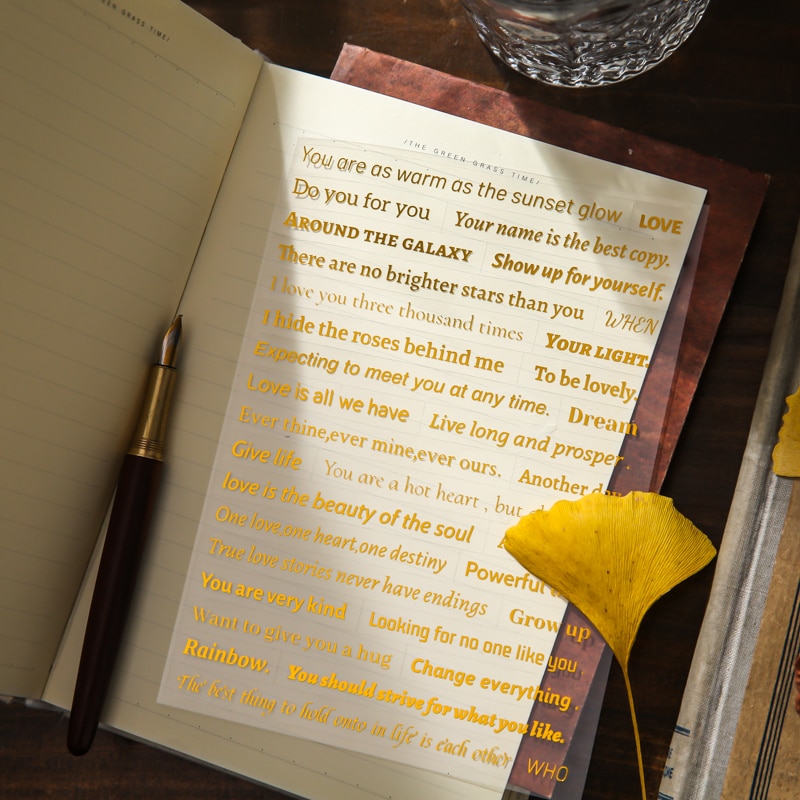 GREEN GRASS TIME/
/THE GREEN GRASS TIME/
You are as warm as the sunset glow LOVE
Do you for you Your name is the best copy.
AROUND THE GALAXY Show up for yourself.
There are no brighter stars than you WHEN
I love you three thousand times YOUR LIGHT.
I hide the roses behind me To be lovely.
Expecting to meet you at any time. Dream
Love is all we have Live long and prosper .
Ever thine,ever mine,ever ours. Another
Give life You are a hot heart , but
love is the beauty of the soul
One love,one heart,one destiny Powerful
True love stories never have endings Grow up
You are very kind Looking for no one like you
Want to give you a hug Change everything .
Rainbow. You should strive for what you like.
The best thing to hold onto in life is each other WHO